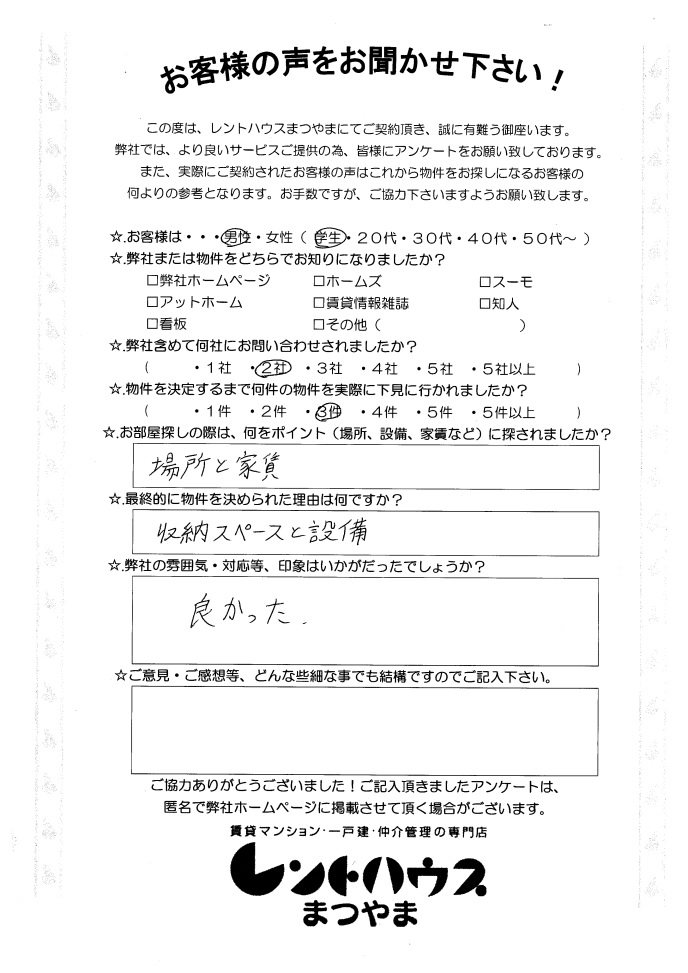 お客様の声をお聞かせ下さい!
この度は、レントハウスまつやまにてご契約頂き、誠に有難う御座います。
弊社では、より良いサービスご提供の為、皆様にアンケートをお願い致しております。
また、実際にご契約されたお客様の声はこれから物件をお探しになるお客様の
何よりの参考となります。お手数ですが、ご協力下さいますようお願い致します。
☆.お客様は・・・男性・女性(学生・20代・30代・40代・50代~)
☆.弊社または物件をどちらでお知りになりましたか?
□弊社ホームページ □ホームズ □スーモ
□アットホーム □賃貸情報雑誌 □知人
□看板 □その他( )
☆.弊社含めて何社にお問い合わせされましたか?
( ・1社 ・2社 ・3社 ・4社 ・5社 ・5社以上 )
☆.物件を決定するまで何件の物件を実際に下見に行かれましたか?
( ・1件 ・2件 ・3件 ・4件 ・5件 ・5件以上 )
☆.お部屋探しの際は、何をポイント(場所、設備、家賃など)に探されましたか?
場所と家賃
☆.最終的に物件を決められた理由は何ですか?
収納スペースと設備
☆.弊社の雰囲気・対応等、印象はいかがだったでしょうか?
良かった.
☆ご意見・ご感想等、どんな些細な事でも結構ですのでご記入下さい。
ご協力ありがとうございました!ご記入頂きましたアンケートは、
匿名で弊社ホームページに掲載させて頂く場合がございます。
賃貸マンション・一戸建・仲介管理の専門店
レントハウス
まつやま